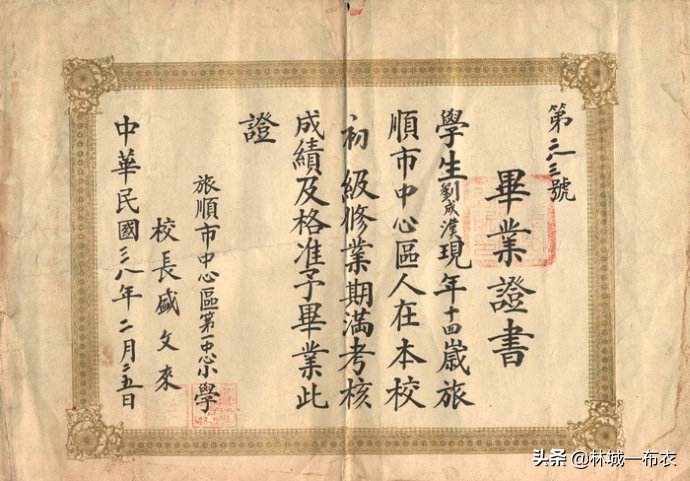 第二八三號
畢業證書
學生劉成漢現年十四歲旅
順市中心區人在本校
初級修業期滿考核
成績及格准予畢業此
證
旅順市中心區第一中心小學
校長盛文來
中華民國三八年二月二五日
头条 @林城一布衣